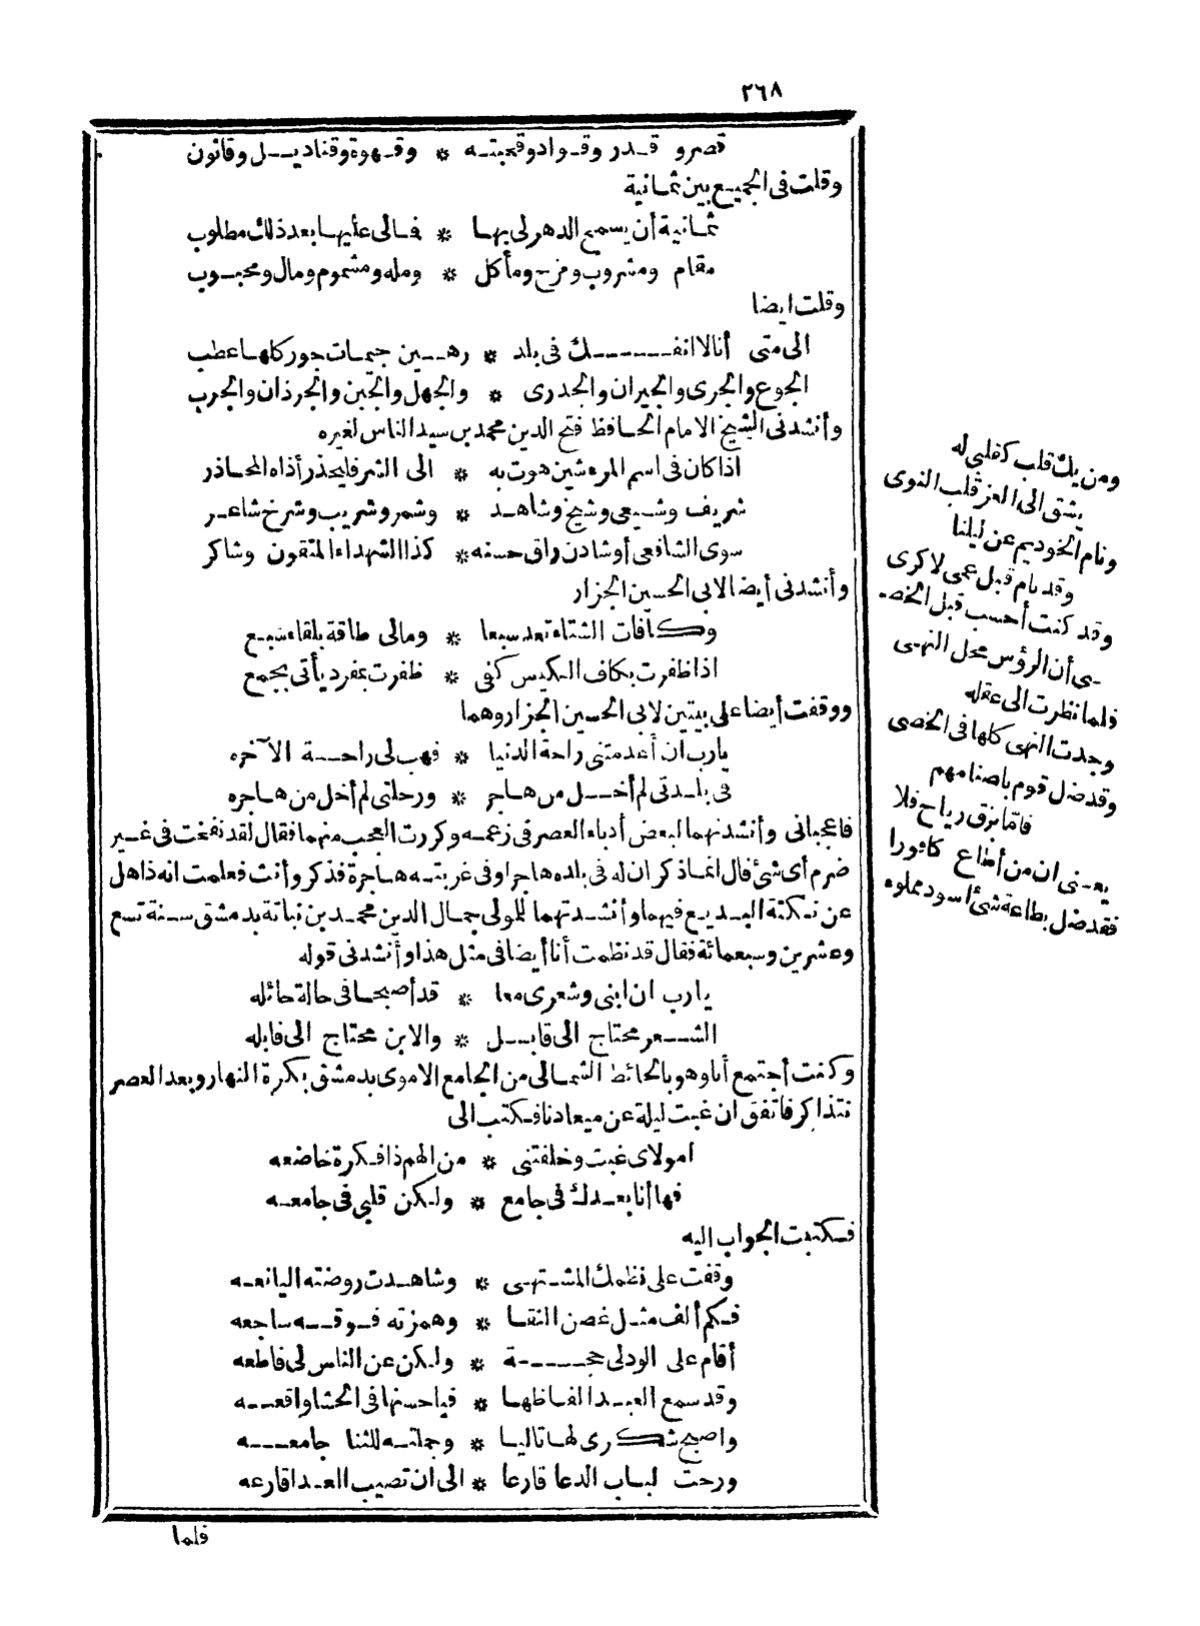 ٢٦٨
قصر و قدر وقواد وقحبته * وقهوة وقناديل وقانون
وقلت فى الجميع بين ثمانية
ثمانية أن يسمح الدهر لى بها * فمالى عليها بعد ذلك مطلوب
مقام ومشروب ومزح ومأكل * ومله ومشموم ومال ومحبوب
وقلت ايضا
الى متى أنا لا انفك فى بلد * رهين جيمات جور كلها عطب
الجوع والجرى والجيران والجدرى * والجهل والجبن والجرذان والجرب
وأنشدنى الشيخ الامام الحافظ فتح الدين محمد بن سيد الناس لغيره
اذا كان فى اسم المرء شين هوت به * الى الشر فليحذر أذاه المحاذر
شريف وشيعى وشيخ وشاهد * وشمر وشريب وشرخ شاعر
سوى الشافعى أو شادن راق حسنه * كذا الشهداء المتقون وشاكر
وأنشدنى أيضا لابى الحسين الجزار
وكافات الشتاء تعد سبعا * ومالى طاقة بلقاء سبع
اذا ظفرت بكاف الكيس كفى * ظفرت بمفرد يأتى بجمع
ووقفت أيضا على بيتين لابى الحسين الجزار وهما
يارب ان أعدمتنى راحة الدنيا * فهب لى راحة الآخره
فى بلدتى لم أخل من هاجر * ورحلتى لم أخل من هاجره
فاعجبانى وأنشدتهما لبعض أدباء العصر فى زعمه وكررت العجب منهما فقال لقد نفخت فى غير
ضرم أى شئ قال انما ذكر ان له فى بلده هاجرا وفى غربته هاجرة فذكر وأنث فعلمت انه ذاهل
عن نكتة البديع فيهما وأنشدتهما للمولى جمال الدين محمد بن نباتة بدمشق سنة تسع
وعشرين وسبعمائة فقال قد نظمت أنا أيضا فى مثل هذا وأنشدنى قوله
يارب ان ابنى وشعرى معا * قد أصبحا فى حالة حائله
الشعر محتاج الى قابل * والابن محتاج الى قابله
وكنت أجتمع أنا وهو بالحائط الشمالى من الجامع الاموى بدمشق بكرة النهار وبعد العصر
نتذاكر فاتفق ان غبت ليلة عن ميعادنا فكتب الى
امولاى غبت وخلفتنى * من الهم ذا فكرة خاضعه
فها أنا بعدك فى جامع * ولكن قلبى فى جامعه
فكتبت الجواب اليه
وقفت على نظمك المشتهى * وشاهدت روضته اليانعه
فكم ألف مثل غصن النقا * وهمزته فوقه ساجعه
أقام على الود لى حجة * ولكن عن الناس لى قاطعه
وقد سمع العبد الفاظها * فيا حسنها فى الحشا واقعه
واصبح شكرى لها تاليا * وجملته للثنا جامعه
ورحت لباب الدعا قارعا * الى ان تصيب العدا قارعه
فلما
ومن يك قلب كقلبى له
يشق الى العز قلب النوى
ونام الخويدم عن ليلنا
وقد نام قبل عمى لا كرى
وقد كنت أحسب قبل الخصـ
ـى أن الرؤس محل النهى
فلما نظرت الى عقله
وجدت النهى كلها فى الخصى
وقد ضل قوم باصنامهم
فاما بزق رياح فلا
يعنى ان من أطاع كافورا
فقد ضل بطاعة شئ أسود مملوء